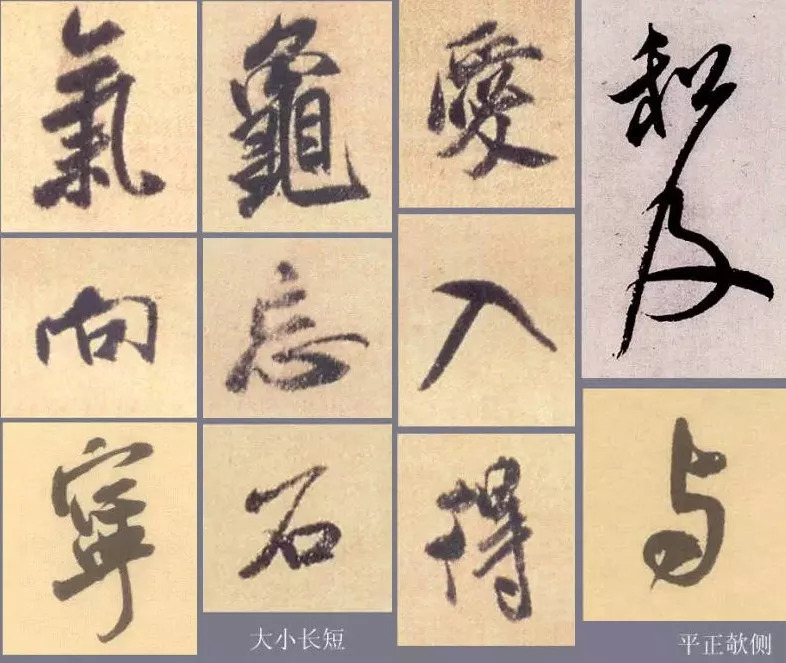 氣
龜
愛
向
忘
入
寧
石
得
和
及
与
大小长短
平正欹侧